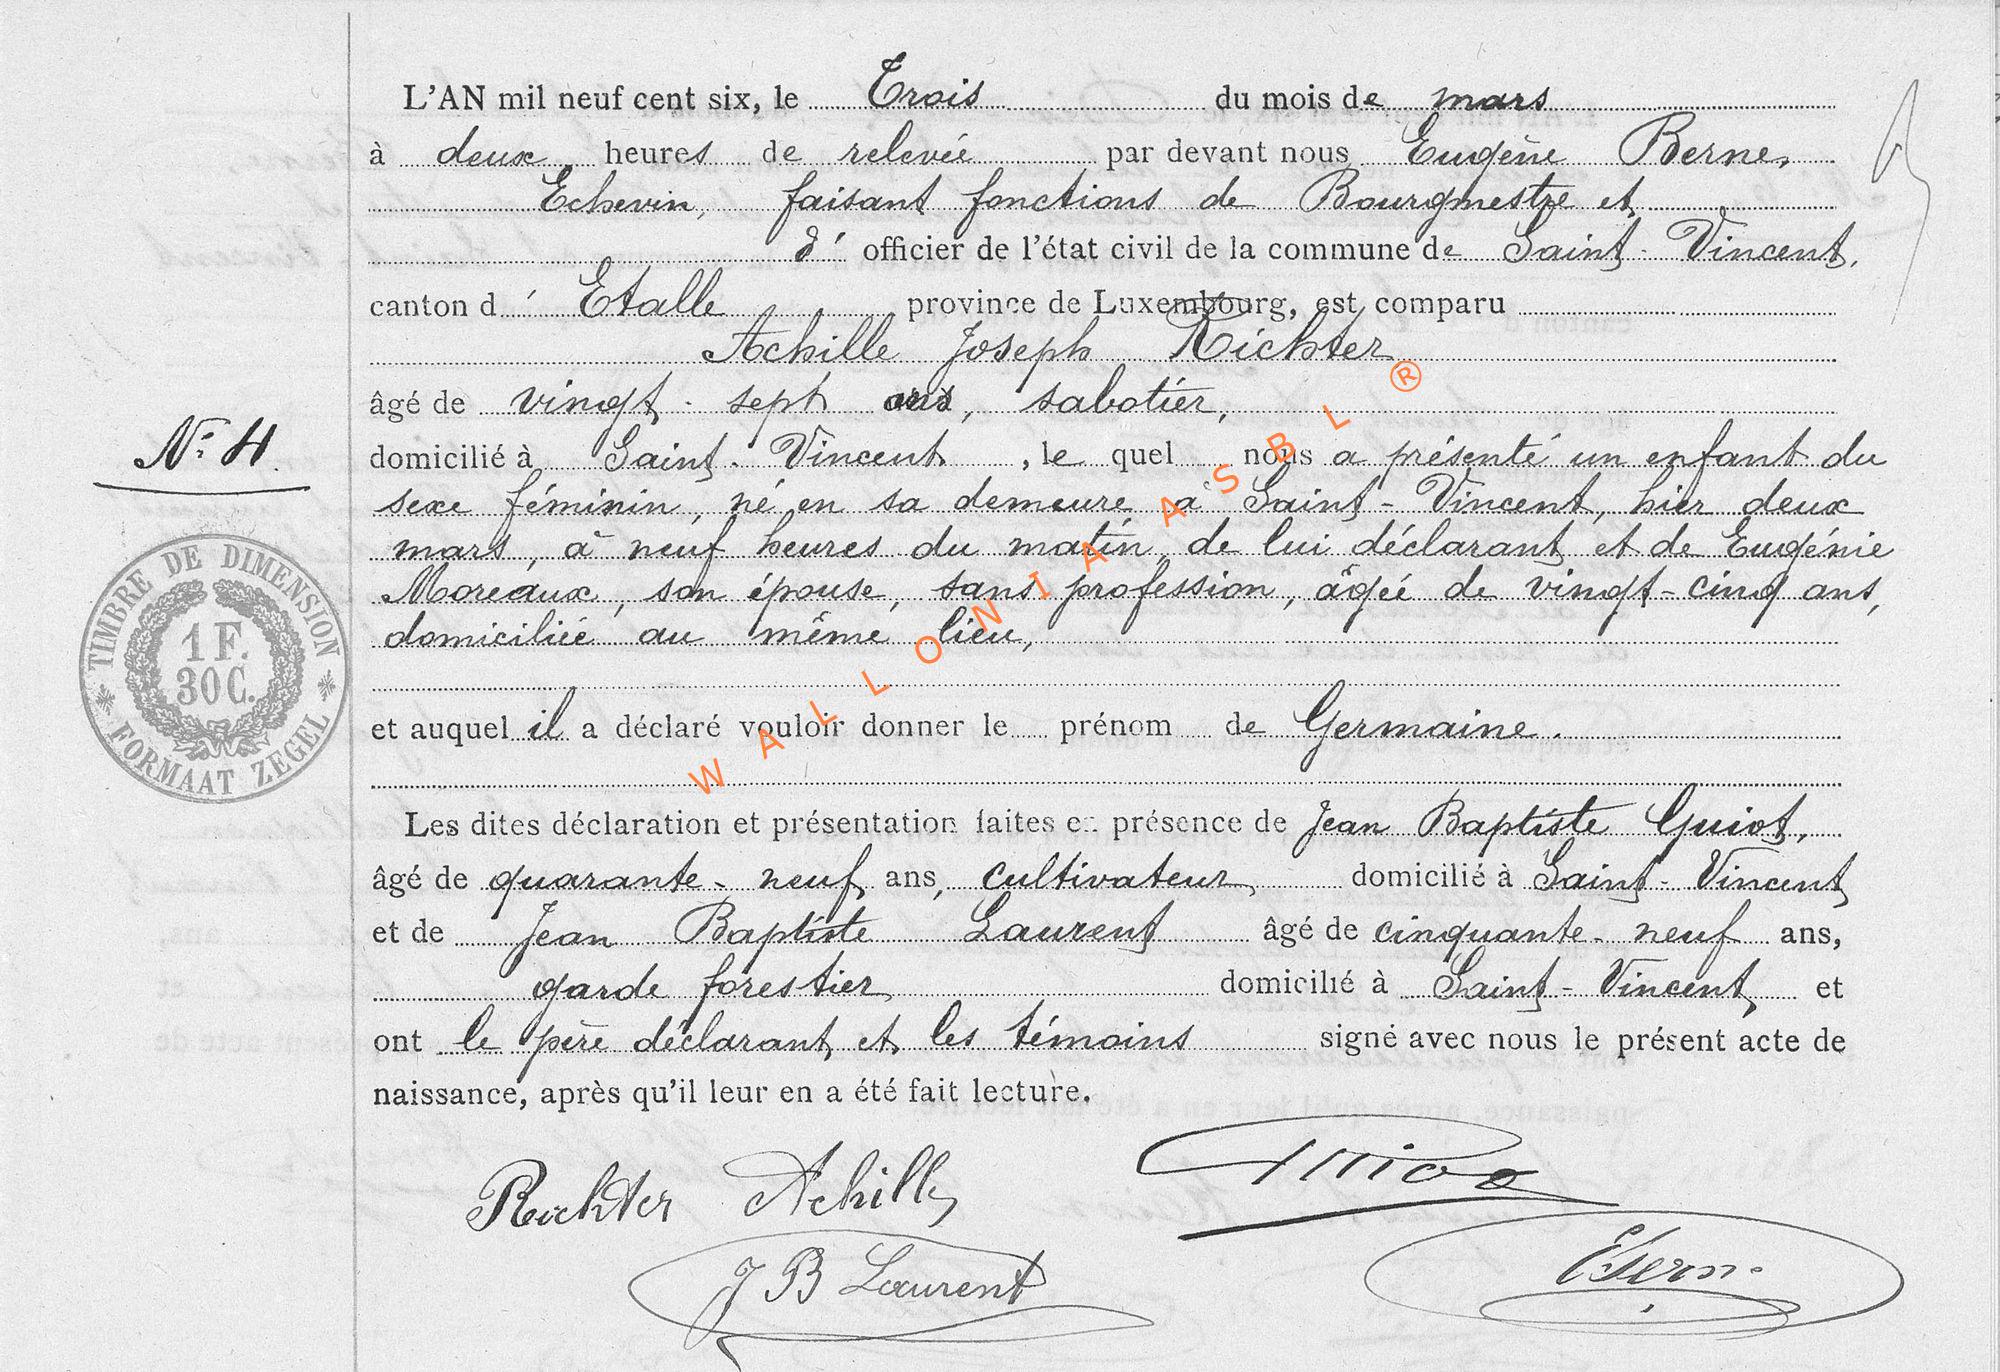 L'AN mil neuf cent six, le Trois du mois de mars
à deux heures de relevée par devant nous Eugène Berne,
Echevin, faisant fonctions de Bourgmestre et
d' officier de l'état civil de la commune de Saint-Vincent,
canton d' Etalle province de Luxembourg, est comparu
Achille Joseph Richter
âgé de vingt-sept ans, sabotier,
domicilié à Saint-Vincent, le quel nous a présenté un enfant du
sexe féminin, né en sa demeure à Saint-Vincent, hier deux
mars, à neuf heures du matin, de lui déclarant et de Eugénie
Moreaux, son épouse, sans profession, âgée de vingt-cinq ans,
domiciliée au même lieu,
et auquel il a déclaré vouloir donner le prénom de Germaine.
Les dites déclaration et présentation faites en présence de Jean Baptiste Guiot,
âgé de quarante-neuf ans, cultivateur, domicilié à Saint-Vincent
et de Jean Baptiste Laurent âgé de cinquante-neuf ans,
garde forestier domicilié à Saint-Vincent, et
ont le père déclarant et les témoins signé avec nous le présent acte de
naissance, après qu'il leur en a été fait lecture.
N° 4.
TIMBRE DE DIMENSION
1 F.
30 C.
FORMAAT ZEGEL
Richter Achille
J B Laurent
EBerne
WALLONIA ASBL ®